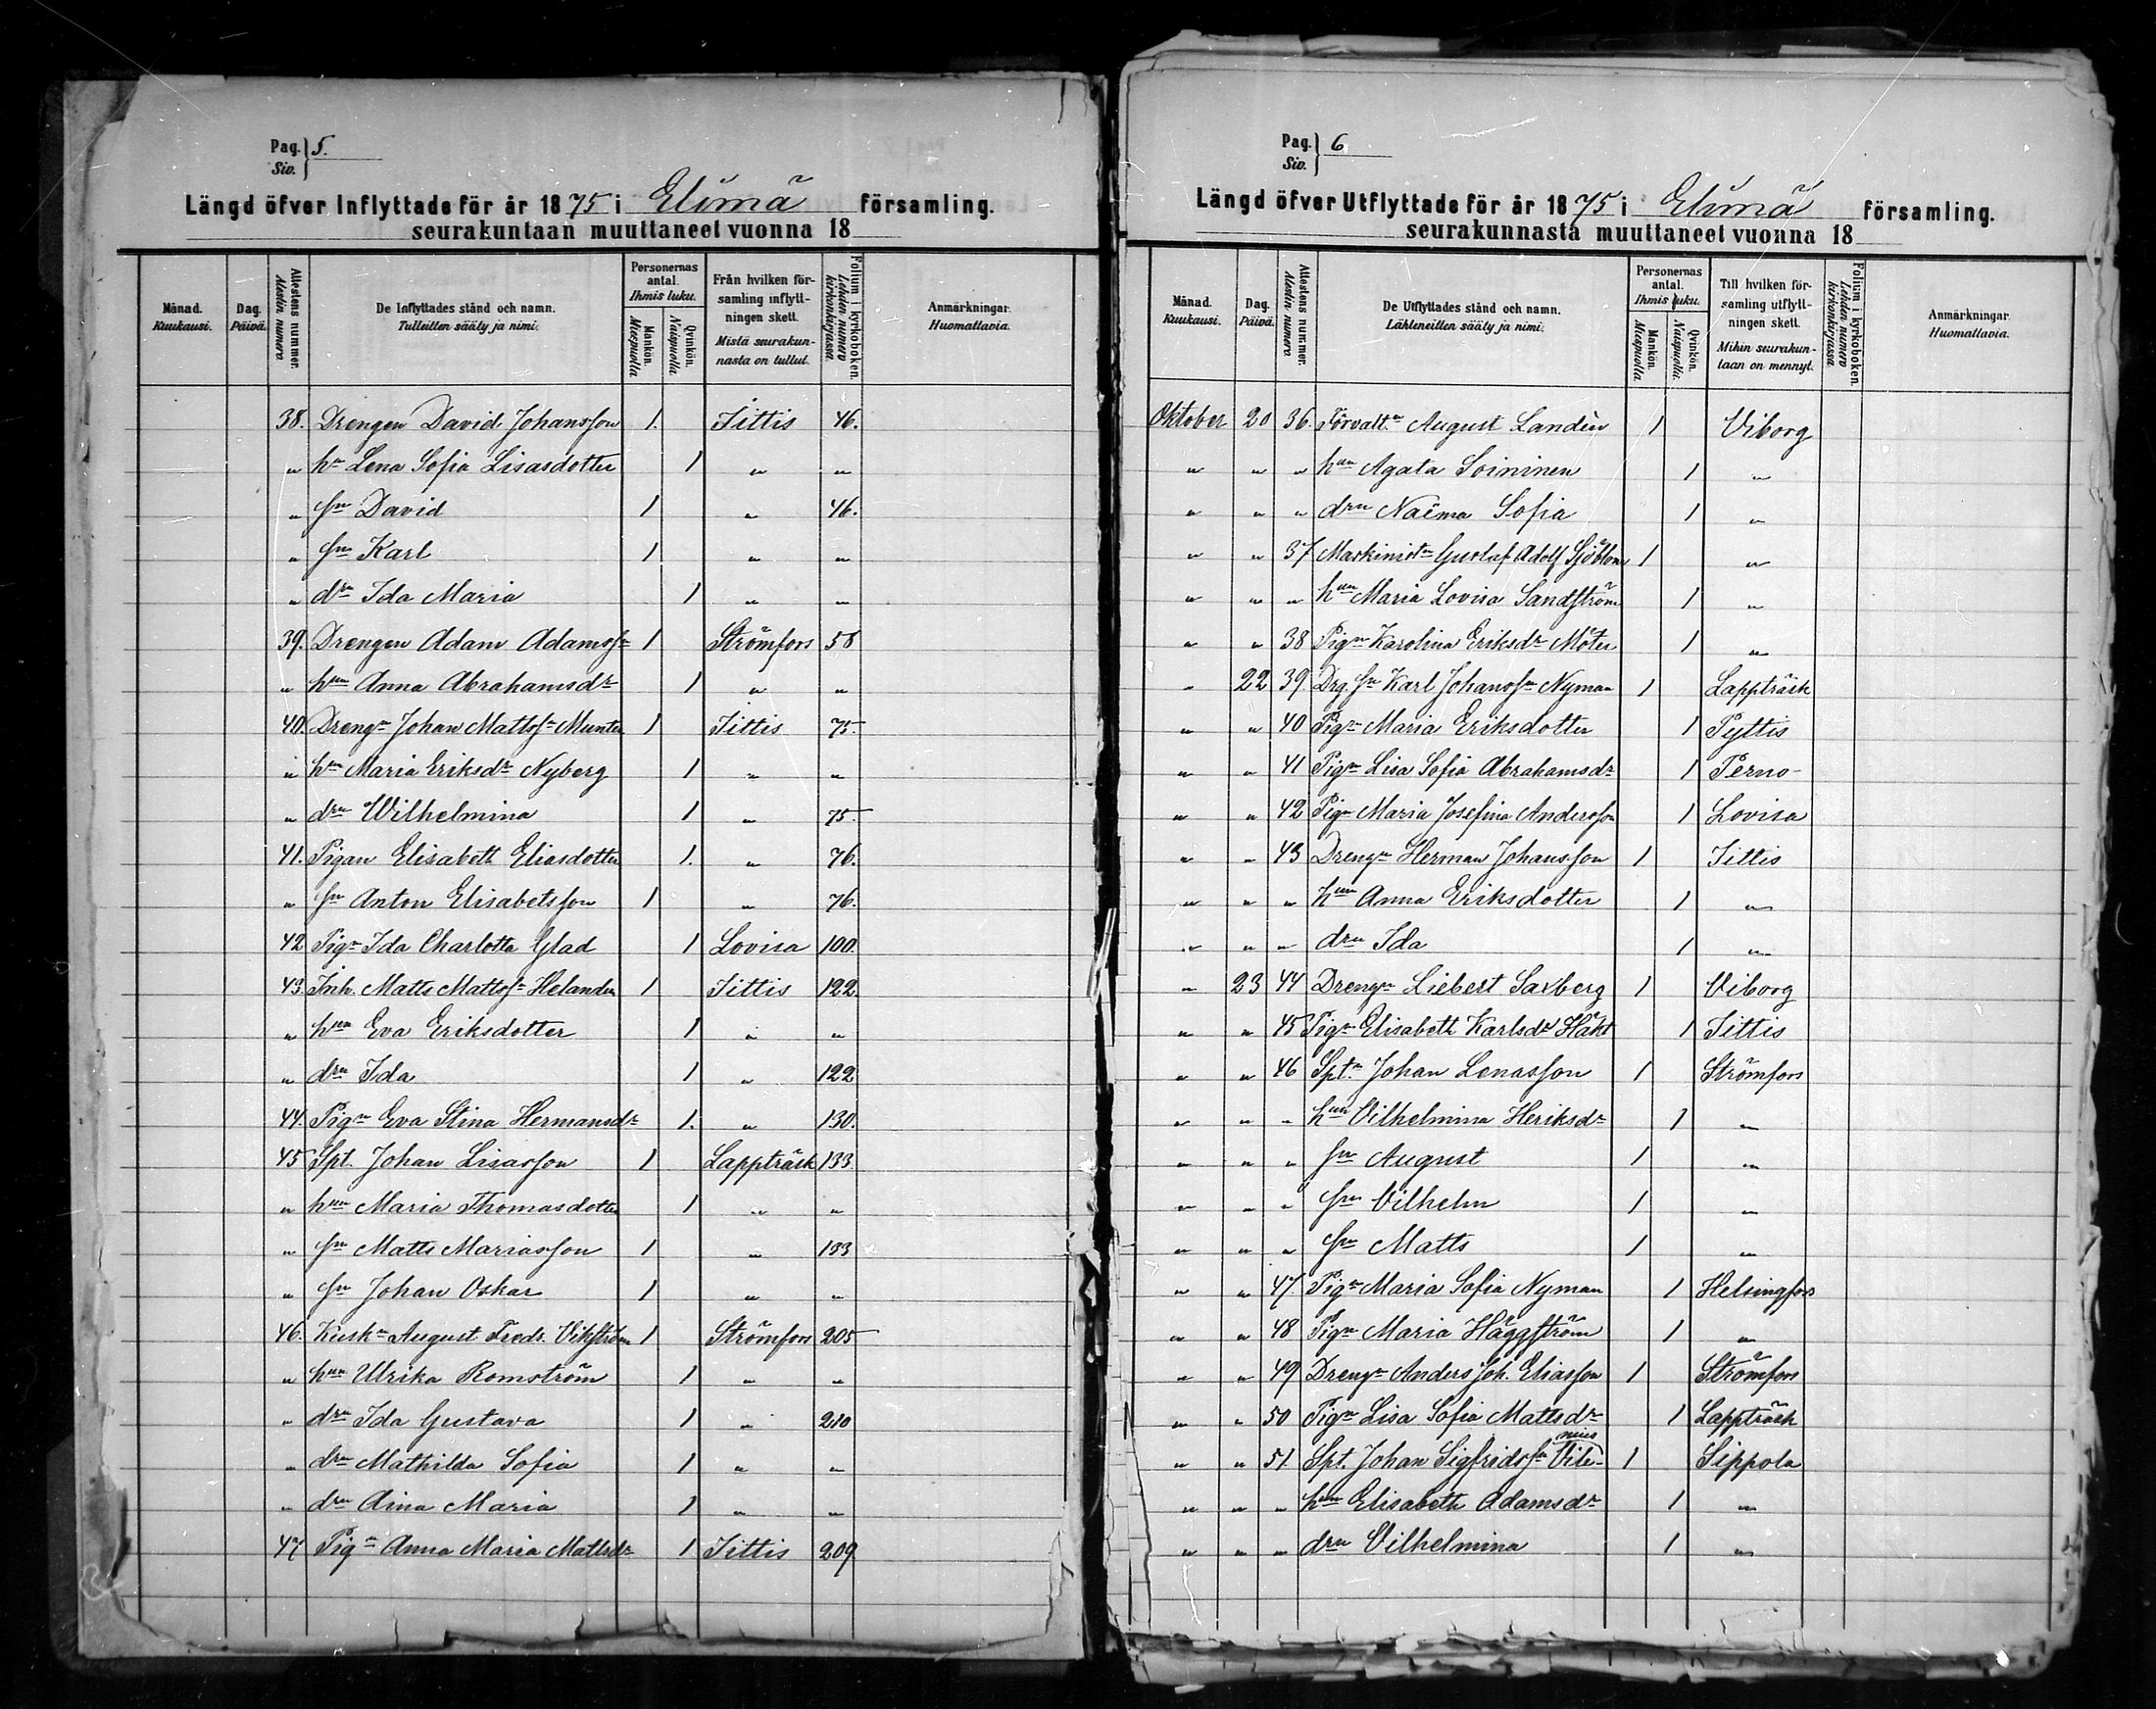 Pag. 5.
Siv.
Längd öfver Inflyttade för år 1875 i Elimä församling.
seurakuntaan muuttaneet vuonna 18
Månad. Kuukausi. Dag. Päivä. Attestens nummer. Atestin numero. De Inflyttades stånd och namn. Tulleitten sääly ja nimi. Personernas antal. Ihmis luku. Mankön. Miespuolla Qvinkön. Naispuolla. Från hvilken församling inflyttningen skett. Mistä seurakunnasta on tullut. Folium i kyrkoboken. Lehden numero kirkonkirjassa. Anmärkningar. Huomattavia.
38. Drengen David Johansson 1. Iittis 46.
" hn Lena Sofia Lisasdotter 1 " "
" sn David 1 " 46.
" sn Karl 1 " "
" drn Ida Maria 1 " "
39. Drengen Adam Adamssn 1 Strömfors 58
" hun Anna Abrahamsdr 1 " "
40. Drengn Johan Mattssn Munter 1 Iittis 75
" hun Maria Eriksdr Nyberg 1 " "
" drn Wilhelmina 1 " 75
41. Pigan Elisabeth Eliasdotter 1. " 76.
" sn Anton Elisabetsson 1 " 76.
42 Pign Ida Charlotta Glad 1 Lovisa 100.
43. Inh. Matts Mattssn Helander 1 Iittis 122.
" hun Eva Eriksdotter 1 " "
" drn Ida 1 " 122
44. Pign Eva Stina Hermansdr 1. " 130.
45 Spt. Johan Lisasson 1 Lappträsk 133
" hun Maria Thomasdotter 1 " "
" sn Matts Mariasson 1 " 133
" sn Johan Oskar 1 " "
46. Kuskn August Fredr. Vikström 1 Strömfors 205
" hun Ulrika Romström 1 " "
" drn Ida Gustava 1 " 210
" drn Mathilda Sofia 1 " "
" drn Aina Maria 1 " "
47 Pign Anna Maria Mattsdr 1 Iittis 209
Pag. 6
Siv.
Längd öfver Utflyttade för år 1875 i Elimä församling.
seurakunnasta muuttaneet vuonna 18
Månad. Kuukausi. Dag. Päivä. Attestens nummer. Atestin numero. De Utflyttades stånd och namn. Lähteneitten sääly ja nimi. Personernas antal. Ihmis luku. Mankön. Miespuolla Qvinkön. Naispuolla. Till hvilken församling utflyttningen skett. Mihin seurakuntaan on mennyt. Folium i kyrkoboken. Lehden numero kirkonkirjassa. Anmärkningar. Huomattavia.
Oktober 20 36. Förvaltn August Landén 1 Viborg
" " " hun Agata Soininen 1 "
" " " drn Naëma Sofia 1 "
" " 37 Maskinistn Gustaf Adolf Sjöblom 1 "
" " " hun Maria Lovisa Sandström 1 "
" " 38 Pign Karolina Eriksdr Möter 1 "
" 22 39. Drg. sn Karl Johanssn Nyman 1 Lappträsk
" " 40 Pign Maria Eriksdotter 1 Pyttis
" " 41 Pign Lisa Sofia Abrahamsdr 1 Perno
" " 42 Pign Maria Josefina Andersson 1 Lovisa
" " 43 Drengn Herman Johansson 1 Iittis
" " " hun Anna Eriksdotter 1 "
" " " drn Ida 1 "
" 23 44 Drengn Liebert Saxberg 1 Viborg
" " 45 Pign Elisabeth Karlsdr Häkt 1 Iittis
" " 46 Sptn Johan Lenasson 1 Strömfors
" " " hun Vilhelmina Heriksdr 1 "
" " " sn August 1 "
" " " sn Vilhelm 1 "
" " " sn Matts 1 "
" " 47. Pign Maria Sofia Nyman 1 Helsingfors
" " 48 Pign Maria Häggström 1 "
" " 49 Drengn Anders Joh. Eliasson 1 Strömfors
" " 50 Pign Lisa Sofia Mattsdr 1 Lappträsk
" " 51 Spt. Johan Sigfridssn Vile-nius 1 Sippola
" " " hun Elisabeth Adamsdr 1 "
" " " drn Vilhelmina 1 "